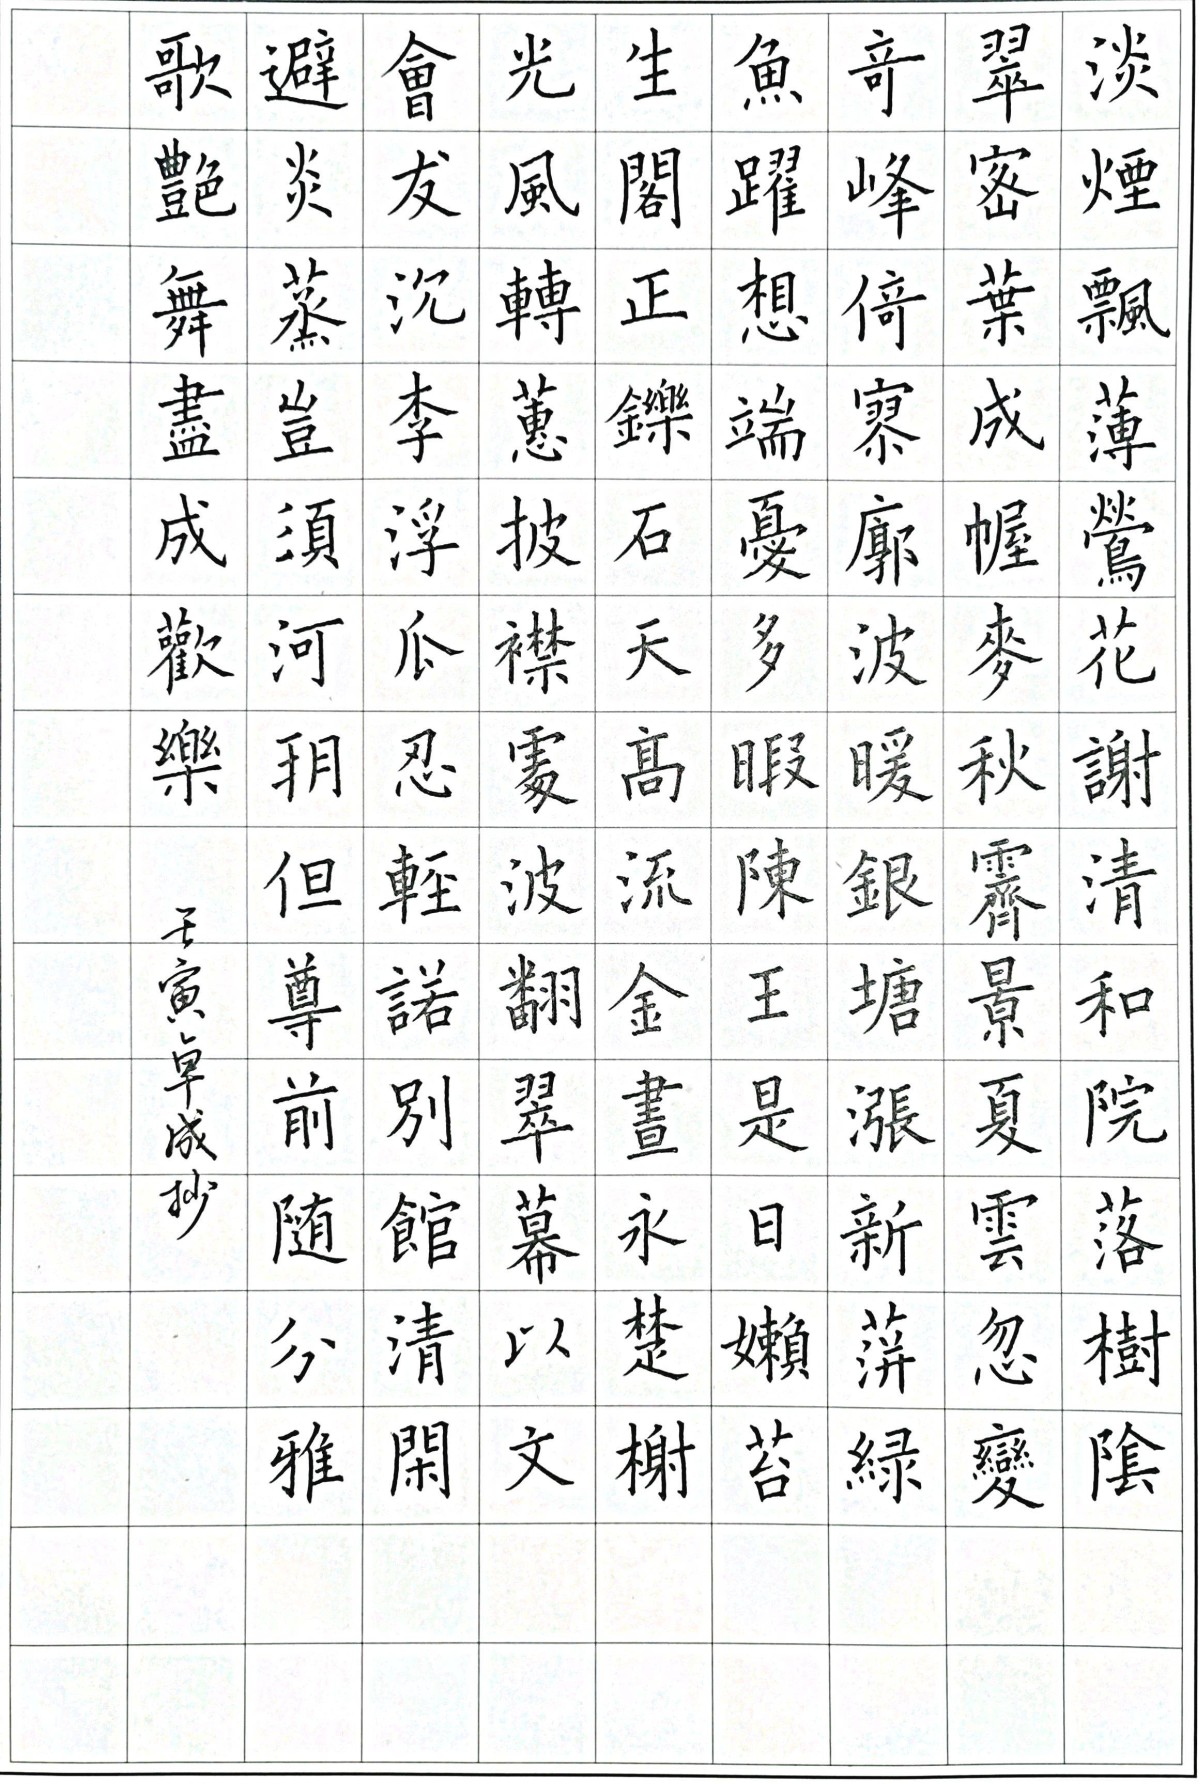 淡煙飄薄鶯花謝清和院落樹陰
翠密葉成幄麥秋霽景夏雲忽變
奇峰倚寥廓波暖銀塘漲新萍綠
魚躍想端憂多暇陳王是日嫩苔
生閣正鑠石天高流金晝永楚榭
光風轉蕙披襟處波翻翠幕以文
會友沉李浮瓜忍輕諾別館清閑
避炎蒸豈須河朔但尊前随分雅
歌艷舞盡成歡樂
壬寅卓成抄